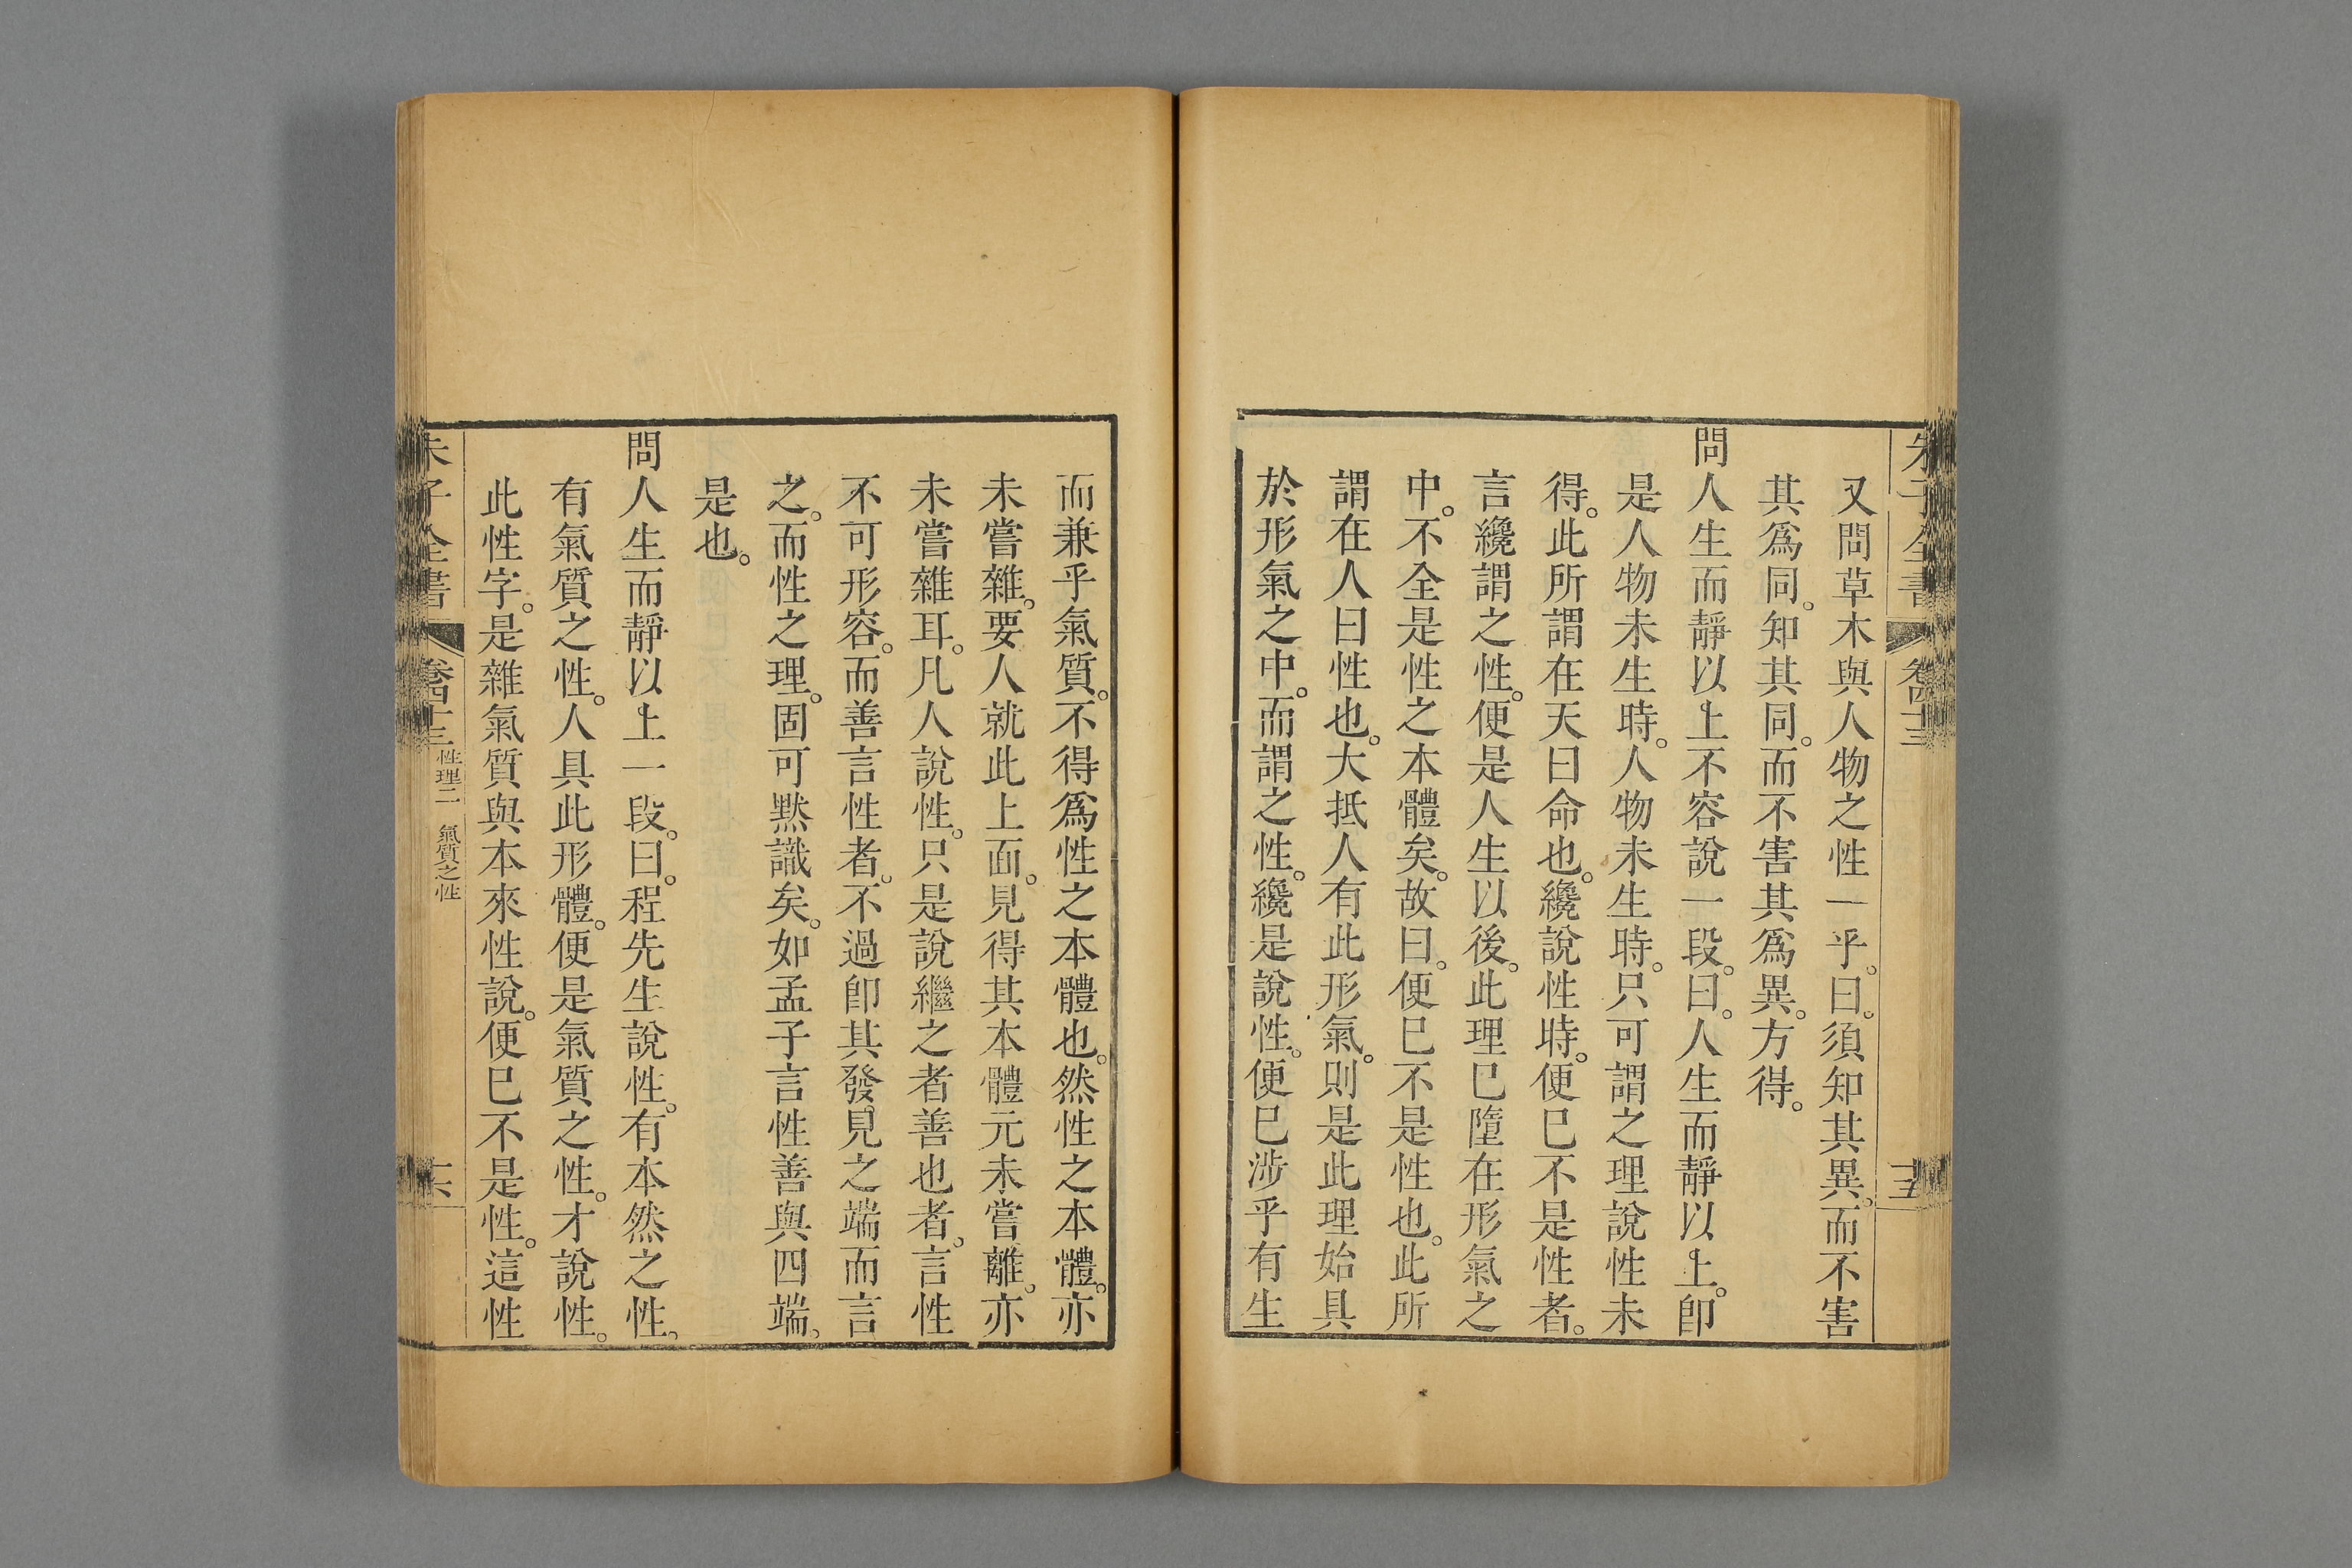 又問草木與人物之性一乎。曰。須知其異。而不害
其爲同。知其同。而不害其爲異。方得。
問人生而靜以上不容說一段。曰。人生而靜以上。卽
是人物未生時。人物未生時。只可謂之理說性未
得。此所謂在天曰命也。纔說性時。便已不是性者。
言纔謂之性。便是人生以後。此理已墮在形氣之
中。不全是性之本體矣。故曰。便已不是性也。此所
謂在人曰性也。大抵人有此形氣。則是此理始具
於形氣之中。而謂之性。纔是說性。便已涉乎有生
而兼乎氣質。不得爲性之本體也。然性之本體。亦
未嘗雜。要人就此上面。見得其本體元未嘗離。亦
未嘗雜耳。凡人說性。只是說繼之者善也者。言性
不可形容。而善言性者。不過卽其發見之端而言
之。而性之理。固可默識矣。如孟子言性善與四端。
是也。
問人生而靜以上一段。曰。程先生說性。有本然之性。
有氣質之性。人具此形體。便是氣質之性。才說性。
此性字。是雜氣質與本來性說。便已不是性。這性
朱子全書
卷四十三
性理二 氣質之性
十六
朱子全書
卷四十三
十五